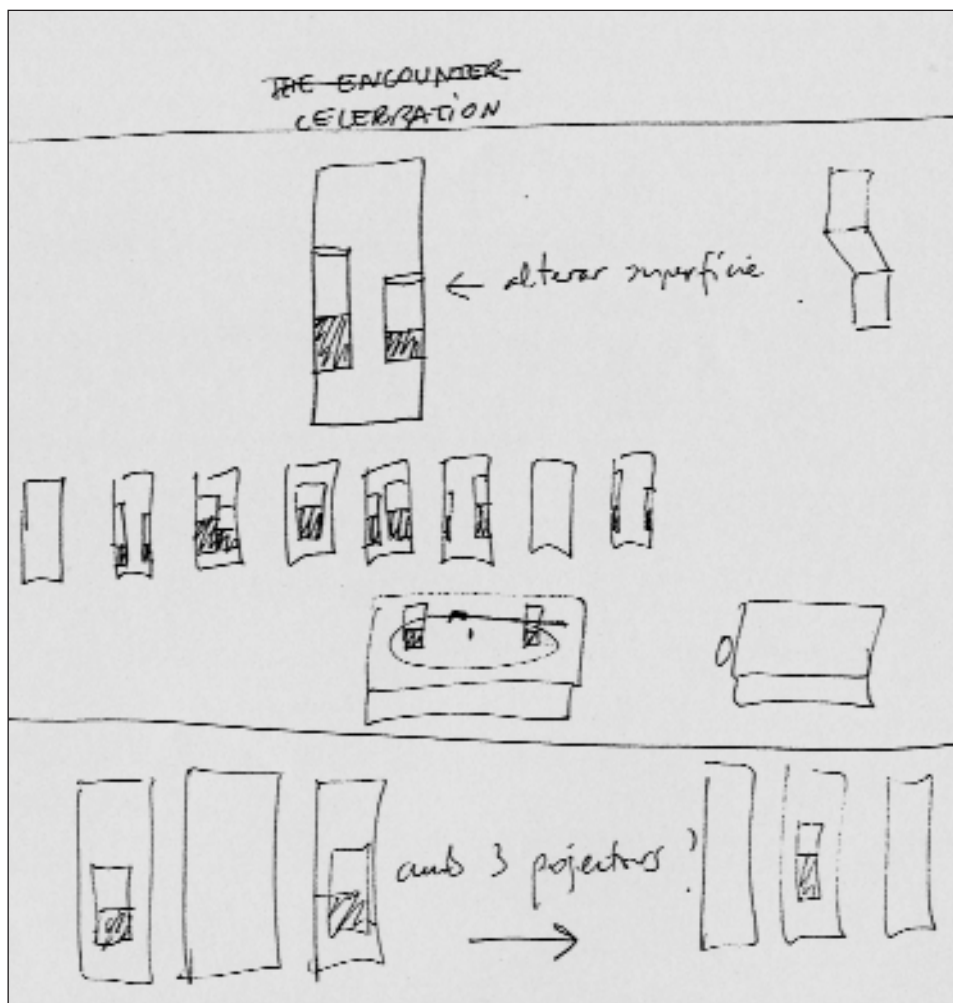 THE ENCOUNTER
CELEBRATION
← alterar superfície
amb 3 projectors ?